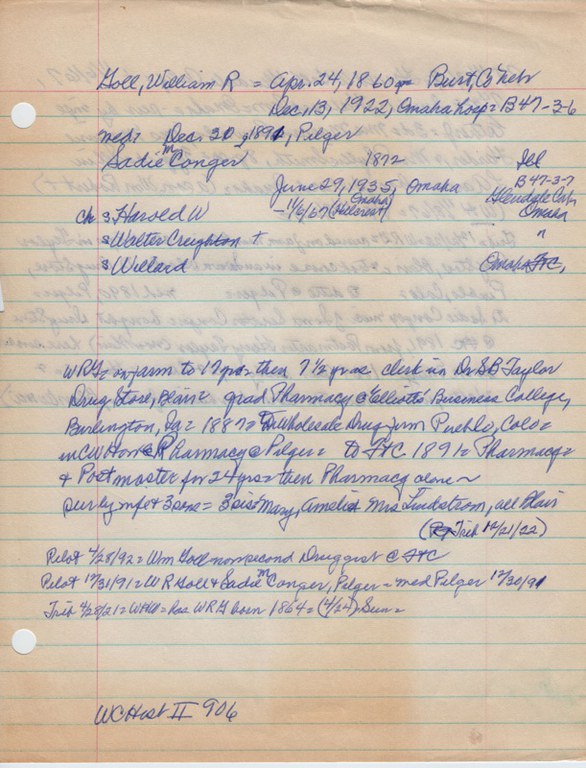 Goll, William R = Apr. 24, 1860 Burt, Co Neb
Dec, 13, 1922, Omaha Hosp = B47-3-6
med: Dec. 30, 1891, Pilger
Sadie M Conger 1872 Ill
June 29, 1935, Omaha B47-3-7
ch s Harold W - 11/6/67 (Omaha Hillcrest) Glendale Calif
s Walter Creighton + Omaha
s Willard "
Omaha
WRG = on farm to 17 yrs = then 7 1/2 yrs = clerk in Dr SB Taylor
Drug Store, Blair = grad Pharmacy @ Elliotts' Business College,
Burlington, Ia = 1887 = To Wholesale Drug firm Pueblo, Colo =
in CW Pharmacy @ Pilger = to FtC 1891 = Pharmacy =
& Postmaster for 24 yrs = then Pharmacy alone ~
sur by wife & 3 sons = 3 sis = Mary, Amelia Mrs Lindstrom, all Blair
(Trib 12/21/22)
Pilot 4/28/92 = Wm Goll now second Druggist @ FtC
Pilot 12/31/91 = W R Goll & Sadie M Conger, Pilger = med Pilger 12/30/91
Trib 4/28/21 = WRG born 1864 = (4/24) Sun =
WC Hist II 906